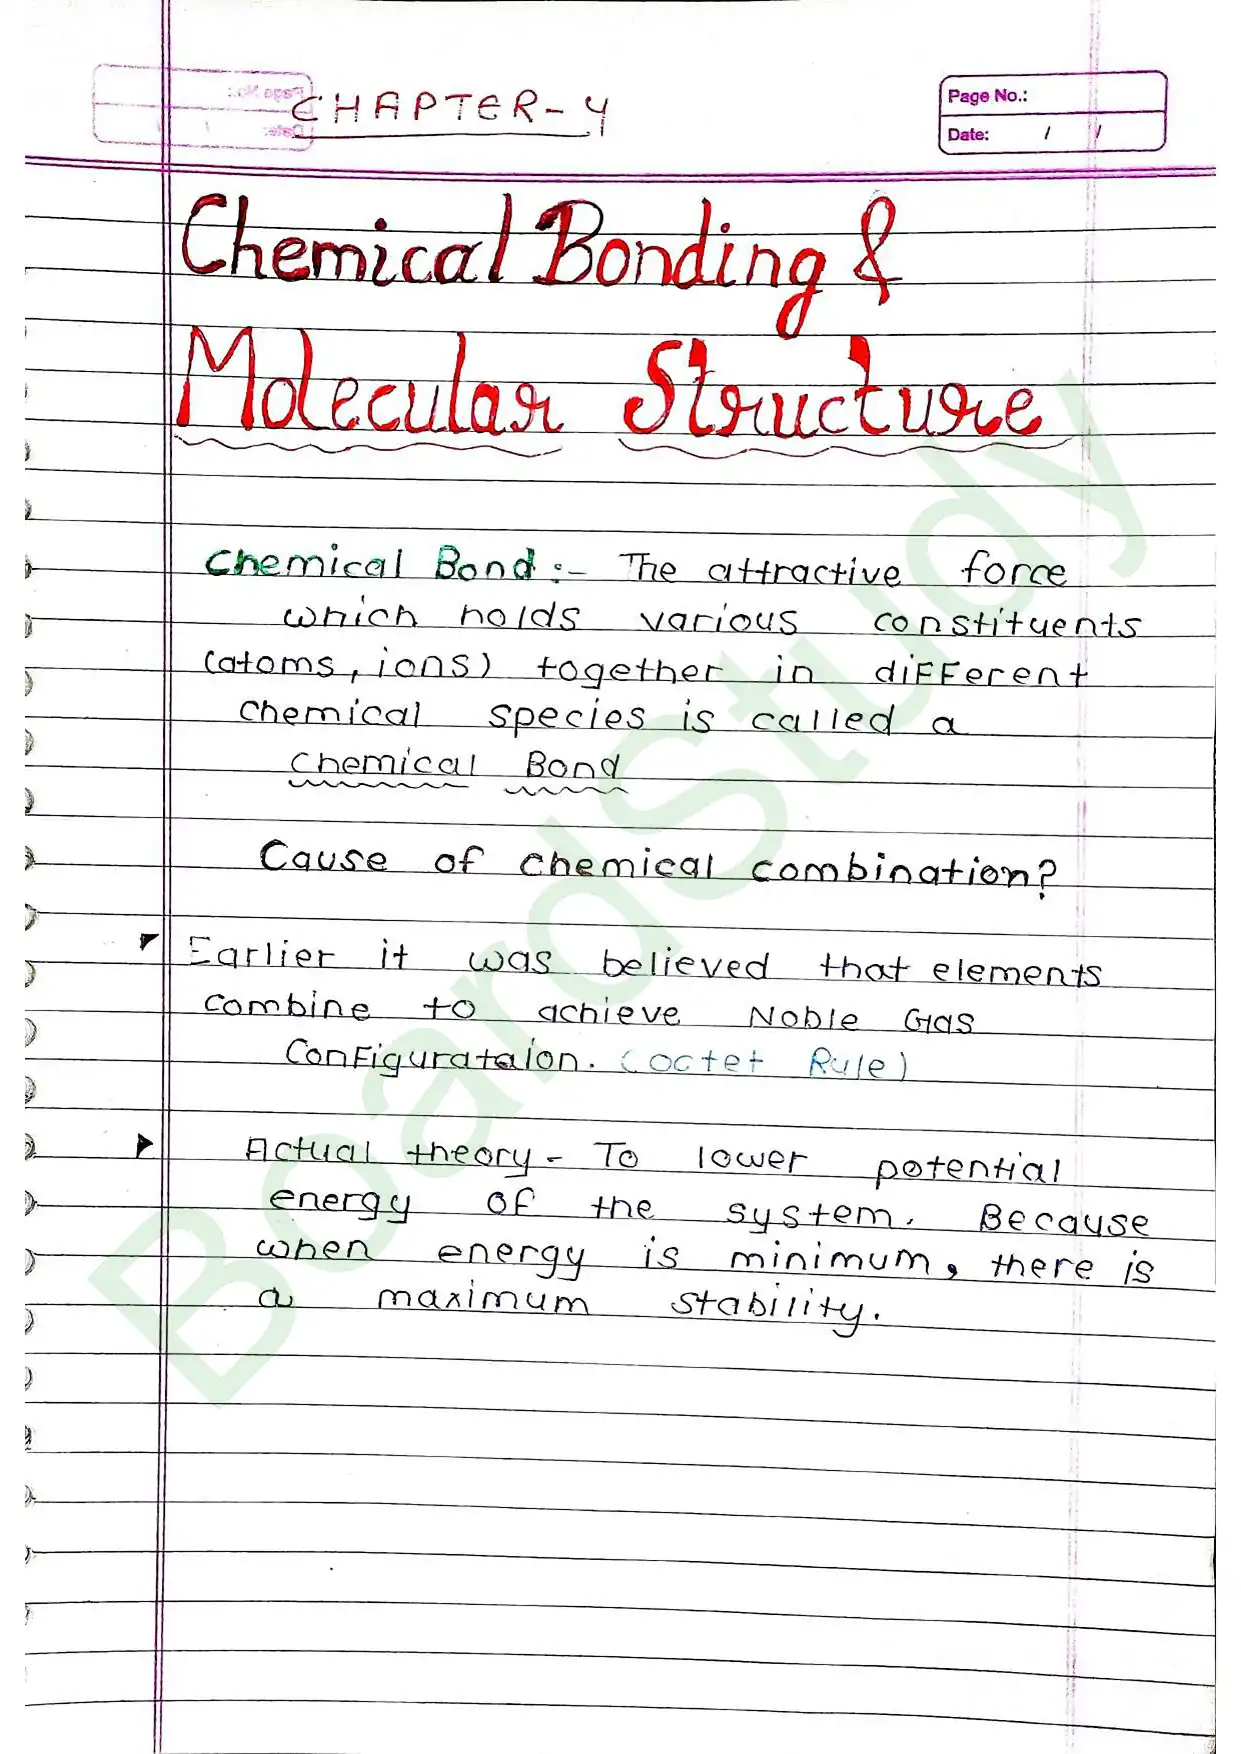 CHAPTER-4
Page No.:
Date: / /
Chemical Bonding &
Molecular Structure
Chemical Bond :- The attractive force
which holds various constituents
(atoms, ions) together in different
chemical species is called a
Chemical Bond
Cause of chemical combination?
Earlier it was believed that elements
combine to achieve Noble Gas
Configurataion. (octet Rule)
Actual theory - To lower potential
energy of the system. Because
when energy is minimum, there is
a maximum stability.
BoardStudy